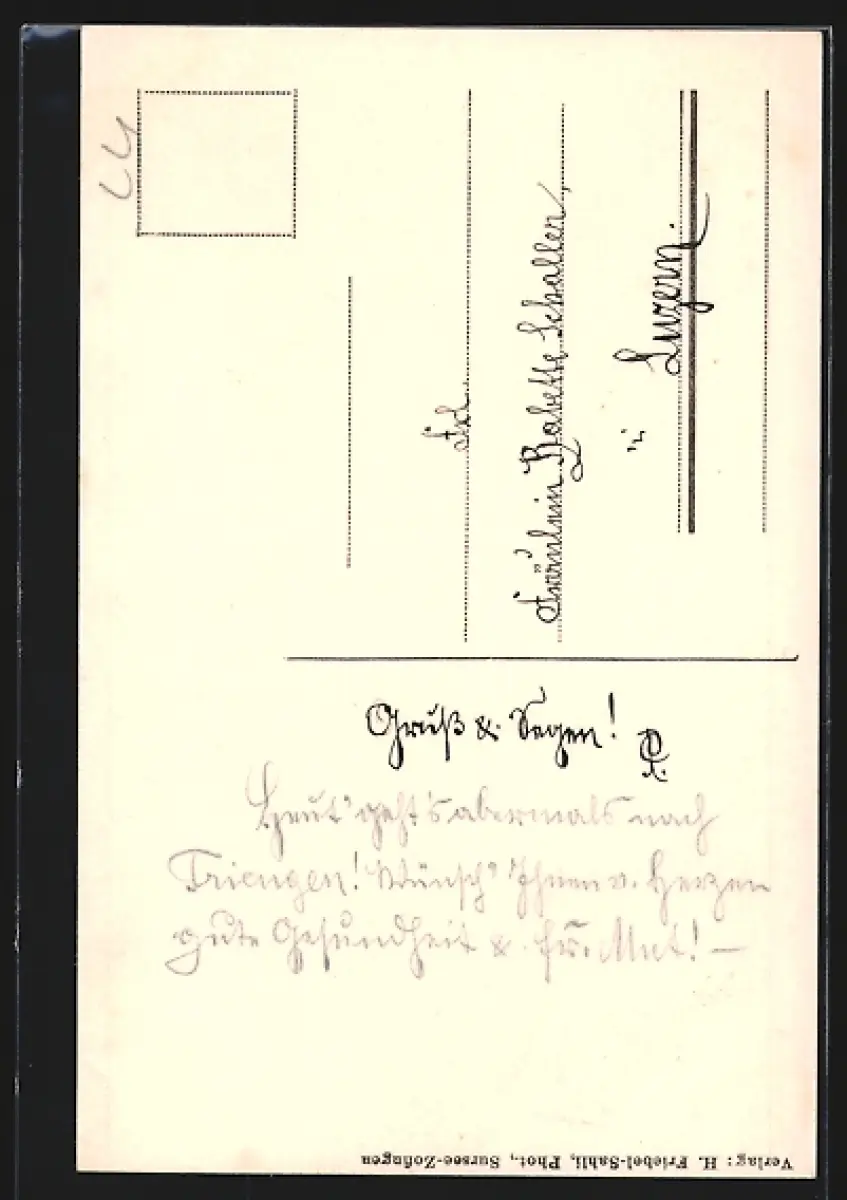 Gruß & Segen!
Heut' geht's abermals nach
Triengen! Wünsch' Ihnen v. Herzen
gute Gesundheit & fr. Mut! —
Frl.
Fräulein Babette Schaller,
in
Luzern.
Verlag: H. Friebel-Sahli, Phot., Sursee-Zofingen